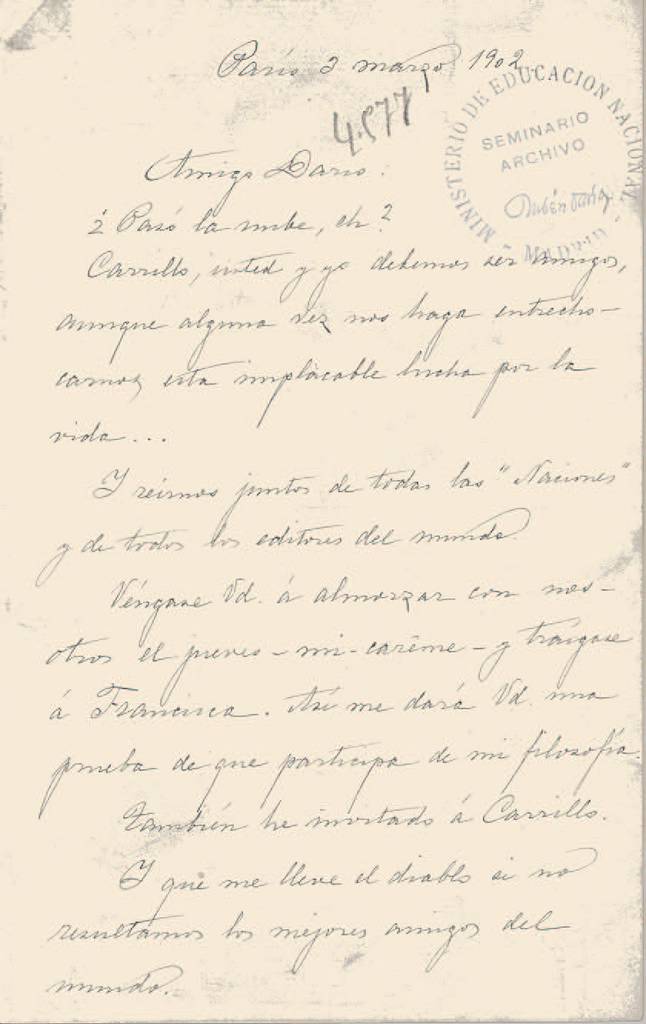 París 3 marzo 1902.
4.977
MINISTERIO DE EDUCACION NACIONAL
SEMINARIO
ARCHIVO
Rubén Darío
- MADRID -
Amigo Dario:
¿Pasó la nube, eh?
Carrillo, usted y yo debemos ser amigos,
aunque alguna vez nos haga entrecho-
carnos esta implacable lucha por la
vida...
Y reirnos juntos de todas las "Naciones"
y de todos los editores del mundo.
Véngase Vd. á almorzar con nos-
otros el jueves - mi-carême - y tráigase
á Francisca. Así me dará Vd. una
prueba de que participa de mi filosofía.
También he invitado á Carrillo.
Y que me lleve el diablo si no
resultamos los mejores amigos del
mundo.